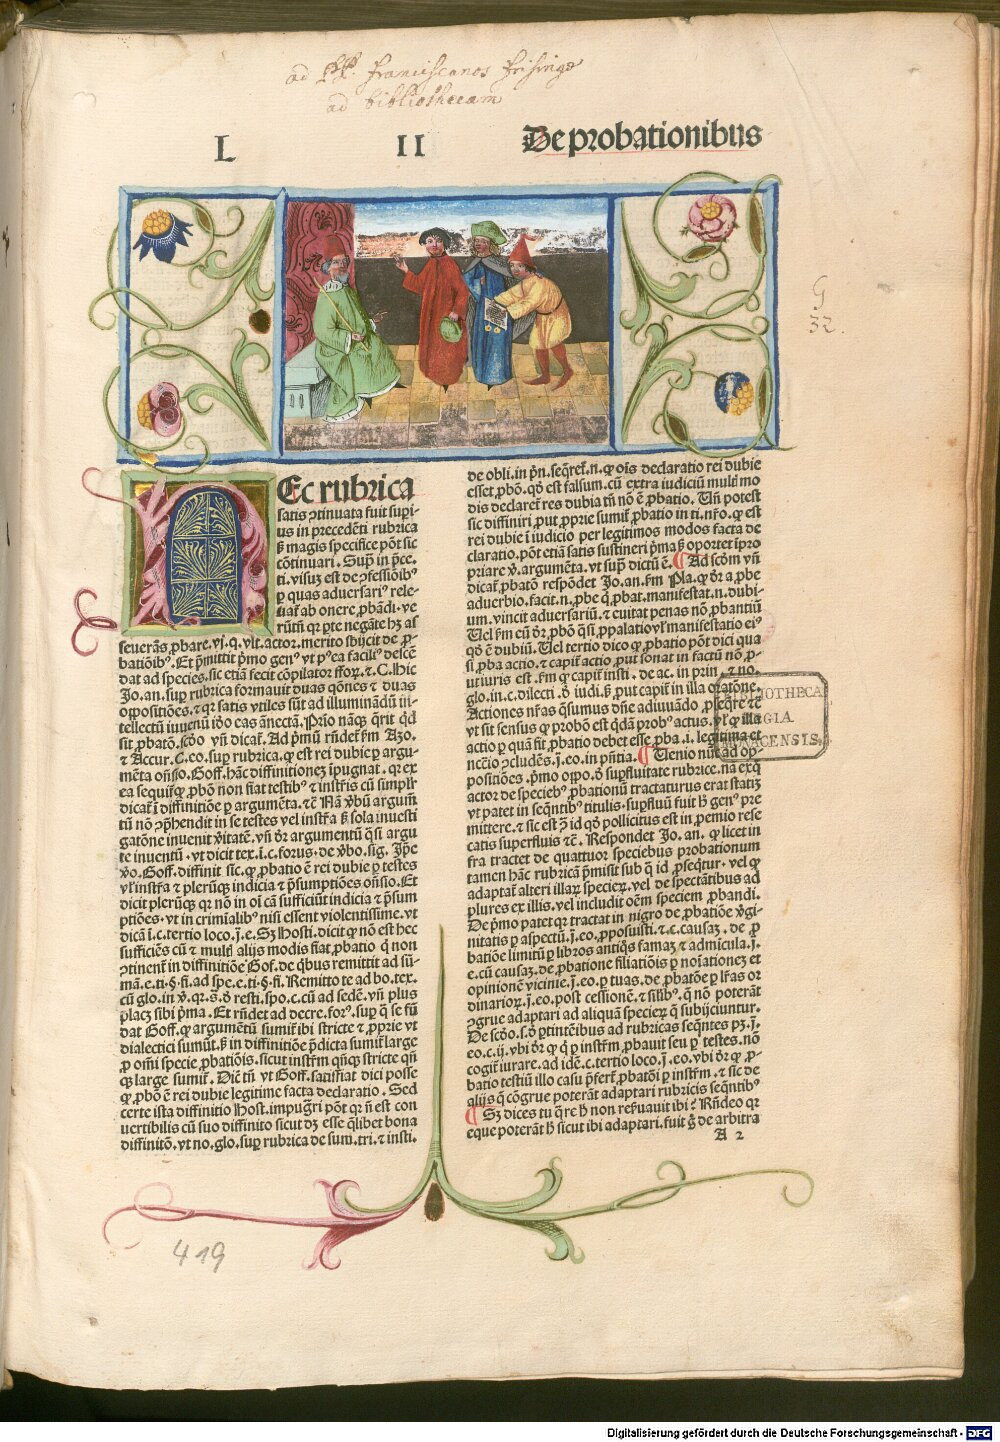 ad PP. Franciscanos Frisingae
ad bibliothecam
L II De probationibus
G
32.
Ec rubrica
satis ꝯtinuata fuit supi-
us in precedēti rubrica
ß magis specifice pōt sic
cōtinuari. Supͣ in p̄ce.
ti. visuƺ est de ꝯfessiōibꝰ
ꝑ quas aduersariꝰ rele-
uat̄ ab onere ꝓbādi. ve
rūtn̄ qꝛ pte negāte hƺ as
seuerās ꝓbare. vj. q. vlt. actor. merito sb̄ijcit de ꝓ-
batiōibꝰ. Et p̄mittit pͥmo genꝰ vt pꝰea faciliꝰ descē
dat ad species. sic etiā fecit cōpilator ffoꝝ. ⁊ C. Hic
Jo. an. supͣ rubrica formauit duas qōnes ⁊ duas
oppositiōes. ⁊ qꝛ satis vtiles sūt ad illuminādū in-
tellectū iuuenū iō eas ānectā. Prīo nāqꝫ q̄rit qͥd
sit ꝓbatō. scōo vn̄ dicat̄. Ad pͥmū rn̄det fm̄ Azo.
⁊ Accur. C. eo. supͣ rubrica. ꝙ est rei dubie ꝑ argu-
mēta on̄sio. Goff. hāc diffinitioneƺ īpugnat. qꝛ ex
ea sequit̄ ꝙ ꝓbō non fiat testibꝰ ⁊ instr̄is cū simplr̄
dicat̄ ī diffinitiōe ꝑ argumēta. ⁊c̄ Nā vbū argum̄
tū nō ꝯp̄hendit in se testes vel instr̄a ß sola inuesti
gatōne inuenit vitatē. vn̄ dr̄ argumentū q̄si argu
te inuentū. vt dicit tex. ī. c. forus. de vbo. sig. Ip̄e
vo. Goff. diffinit sic. ꝙ ꝓbatio ē rei dubie ꝑ testes
vl' instr̄a ⁊ plerūqꝫ indicia ⁊ p̄sumptiōes on̄sio. Et
dicit plerūqꝫ qꝛ nō in oī cā sufficiūt indicia ⁊ p̄sum
ptiōes. vt in crimīalibꝰ nisi essent violentissime. vt
dicā ī. c. tertio loco. j̄. e. Sƺ Hosti. dicit ꝙ nō est hec
sufficiēs cū ⁊ multꝭ alijs modis fiat ꝓbatio qͥ non
ꝯtinent̄ in diffinitiōe Gof. de qͥbus remittit ad sū-
mā. e. ti. §. fi. ad spe. e. ti. §. fi. Remitto te ad ho. tex.
cū glo. in v. qꝛ. s. ō resti. spo. c. cū ad sedē. vn̄ plus
placꝫ sibi pͥma. Et rn̄det ad decre. forꝰ. supͣ qͣ se fū
dat Goff. ꝙ argumētū sumit̄ ibi stricte ⁊ ꝓprie vt
dialectici sumūt. ß in diffinitiōe p̄dicta sumit̄ large
ꝓ om̄i specie ꝓbatiōis. sicut instr̄m qn̄qꝫ stricte qn̄
qꝫ large sumit̄. Dic̄ tn̄ vt Goff. satisfiat dici posse
ꝙ ꝓbō ē rei dubie legitime facta declaratio. Sed
certe ista diffinitio Host. impugr̄i pōt qꝛ n̄ est con
vertibilis cū suo diffinito sicut dƺ esse qͣlibet bona
diffinitō. vt no. glo. supͣ rubrica de sum. tri. ⁊ insti.
de obli. in pn̄. seqr̄et̄. n. ꝙ oīs declaratio rei dubie
esset ꝓbō. qd̄ est falsum. cū extra iudiciū multꝭ mo
dis declaret̄ res dubia tn̄ nō ē ꝓbatio. Un̄ potest
sic diffiniri put ꝓprie sumit̄ ꝓbatio in ti. nr̄o. ꝙ est
rei dubie ī iudicio per legitimos modos facta de
claratio. pōt etiā satis sustineri pͥma ß oportet īpro
priare v. argumēta. vt supͣ dictū ē. ¶ Ad scōm vn̄
dicat̄ ꝓbatō respōdet Jo. an. fm̄ Pla. ꝙ dr̄ a ꝓbe
aduerbio. facit. n. ꝓbe qͥ ꝓbat. manifestat. n. dubi-
um. vincit aduersariū. ⁊ euitat penas nō ꝓbantiū
Uel fm̄ eū dr̄ ꝓbō q̄si ꝓpalatio vl' manifestatio eiꝰ
qd̄ ē dubiū. Uel tertio dico ꝙ ꝓbatio pōt dici qua
si ꝓba actio. ⁊ capit̄ actio put sonat in factū nō p-
ut iuris est. fm̄ ꝙ capit̄ insti. de ac. in prin. ⁊ no.
glo. in. c. dilecti. ō iudi. ß put capit̄ in illa oratōne.
Actiones nr̄as qͣsumus dn̄e adiuuādo ꝓseqr̄e ⁊c̄
vt sit sensus ꝙ ꝓbō est qd̄ā ꝓbꝰ actus. vl' ꝙ illa
actio ꝑ quā fit ꝓbatio debet esse ꝓba. i. legitima et
ncc̄io ꝯcludēs. j̄. eo. in pn̄tia. ¶ Uenio nūc ad op-
positiōes. pͥmo oppo. ō supfluitate rubrice. na exqͦ
actor de speciebꝰ ꝓbationū tractaturus erat statiƺ
vt patet in seqn̄tibꝰ titulis. supfluū fuit h̄ genꝰ pre
mittere. ⁊ sic est ꝯ id qd̄ pollicitus est in ꝓemio rese
catis superfluis ⁊c̄. Respondet Jo. an. ꝙ licet in
fra tractet de quattuor speciebus probationum
tamen hāc rubricā p̄misit sub qͣ id ꝓseqt̄ur. vel ꝙ
adaptat̄ alteri illaꝝ specieꝝ. vel de spectātibus ad
plures ex illis. vel includit oēm speciem ꝓbandi.
De pͥmo patet qꝛ tractat in nigro de ꝓbatiōe vgi-
nitatis ꝑ aspectū. j̄. eo. ꝓposuisti. ⁊. c. causaƺ. de ꝓ
batiōe limitū ꝑ libros antiqͦs famaƺ ⁊ admīcula. j̄.
e. cū causaƺ. de ꝓbatione filiatiōis ꝑ noīationeƺ et
opinionē vicinie. j̄. eo. ꝑ tuas. de ꝓbatōe ꝑ lr̄as or
dinarioꝝ. j̄. eo. post cessionē. ⁊ silibꝰ. qͥ nō poterāt
ꝯgrue adaptari ad aliquā specieꝝ qͥ subijciuntur.
De scōo. s. ō ꝑtinētibus ad rubricas seqn̄tes pƺ. j̄.
eo. c. ij. vbi dr̄ ꝙ qͥ ꝑ instr̄m ꝓbauit seu ꝑ testes. nō
cogit̄ iurare. ad idē. c. tertio loco. j̄. eo. vbi dr̄ ꝙ ꝓ-
batio testiū illo casu p̄fert̄ ꝓbatōi ꝑ instr̄m. ⁊ sic de
alijs qͥ cōgrue poterāt adaptari rubricis seqn̄tibꝰ
¶ Sƺ dices tu qͣre h̄ non refuauit ibi? Rn̄deo qꝛ
eque poterāt h̄ sicut ibi adaptari. fuit g̊ de arbitra
A 2
BIBLIOTHECA
REGIA
MONACENSIS.
419
Digitalisierung gefördert durch die Deutsche Forschungsgemeinschaft - DFG